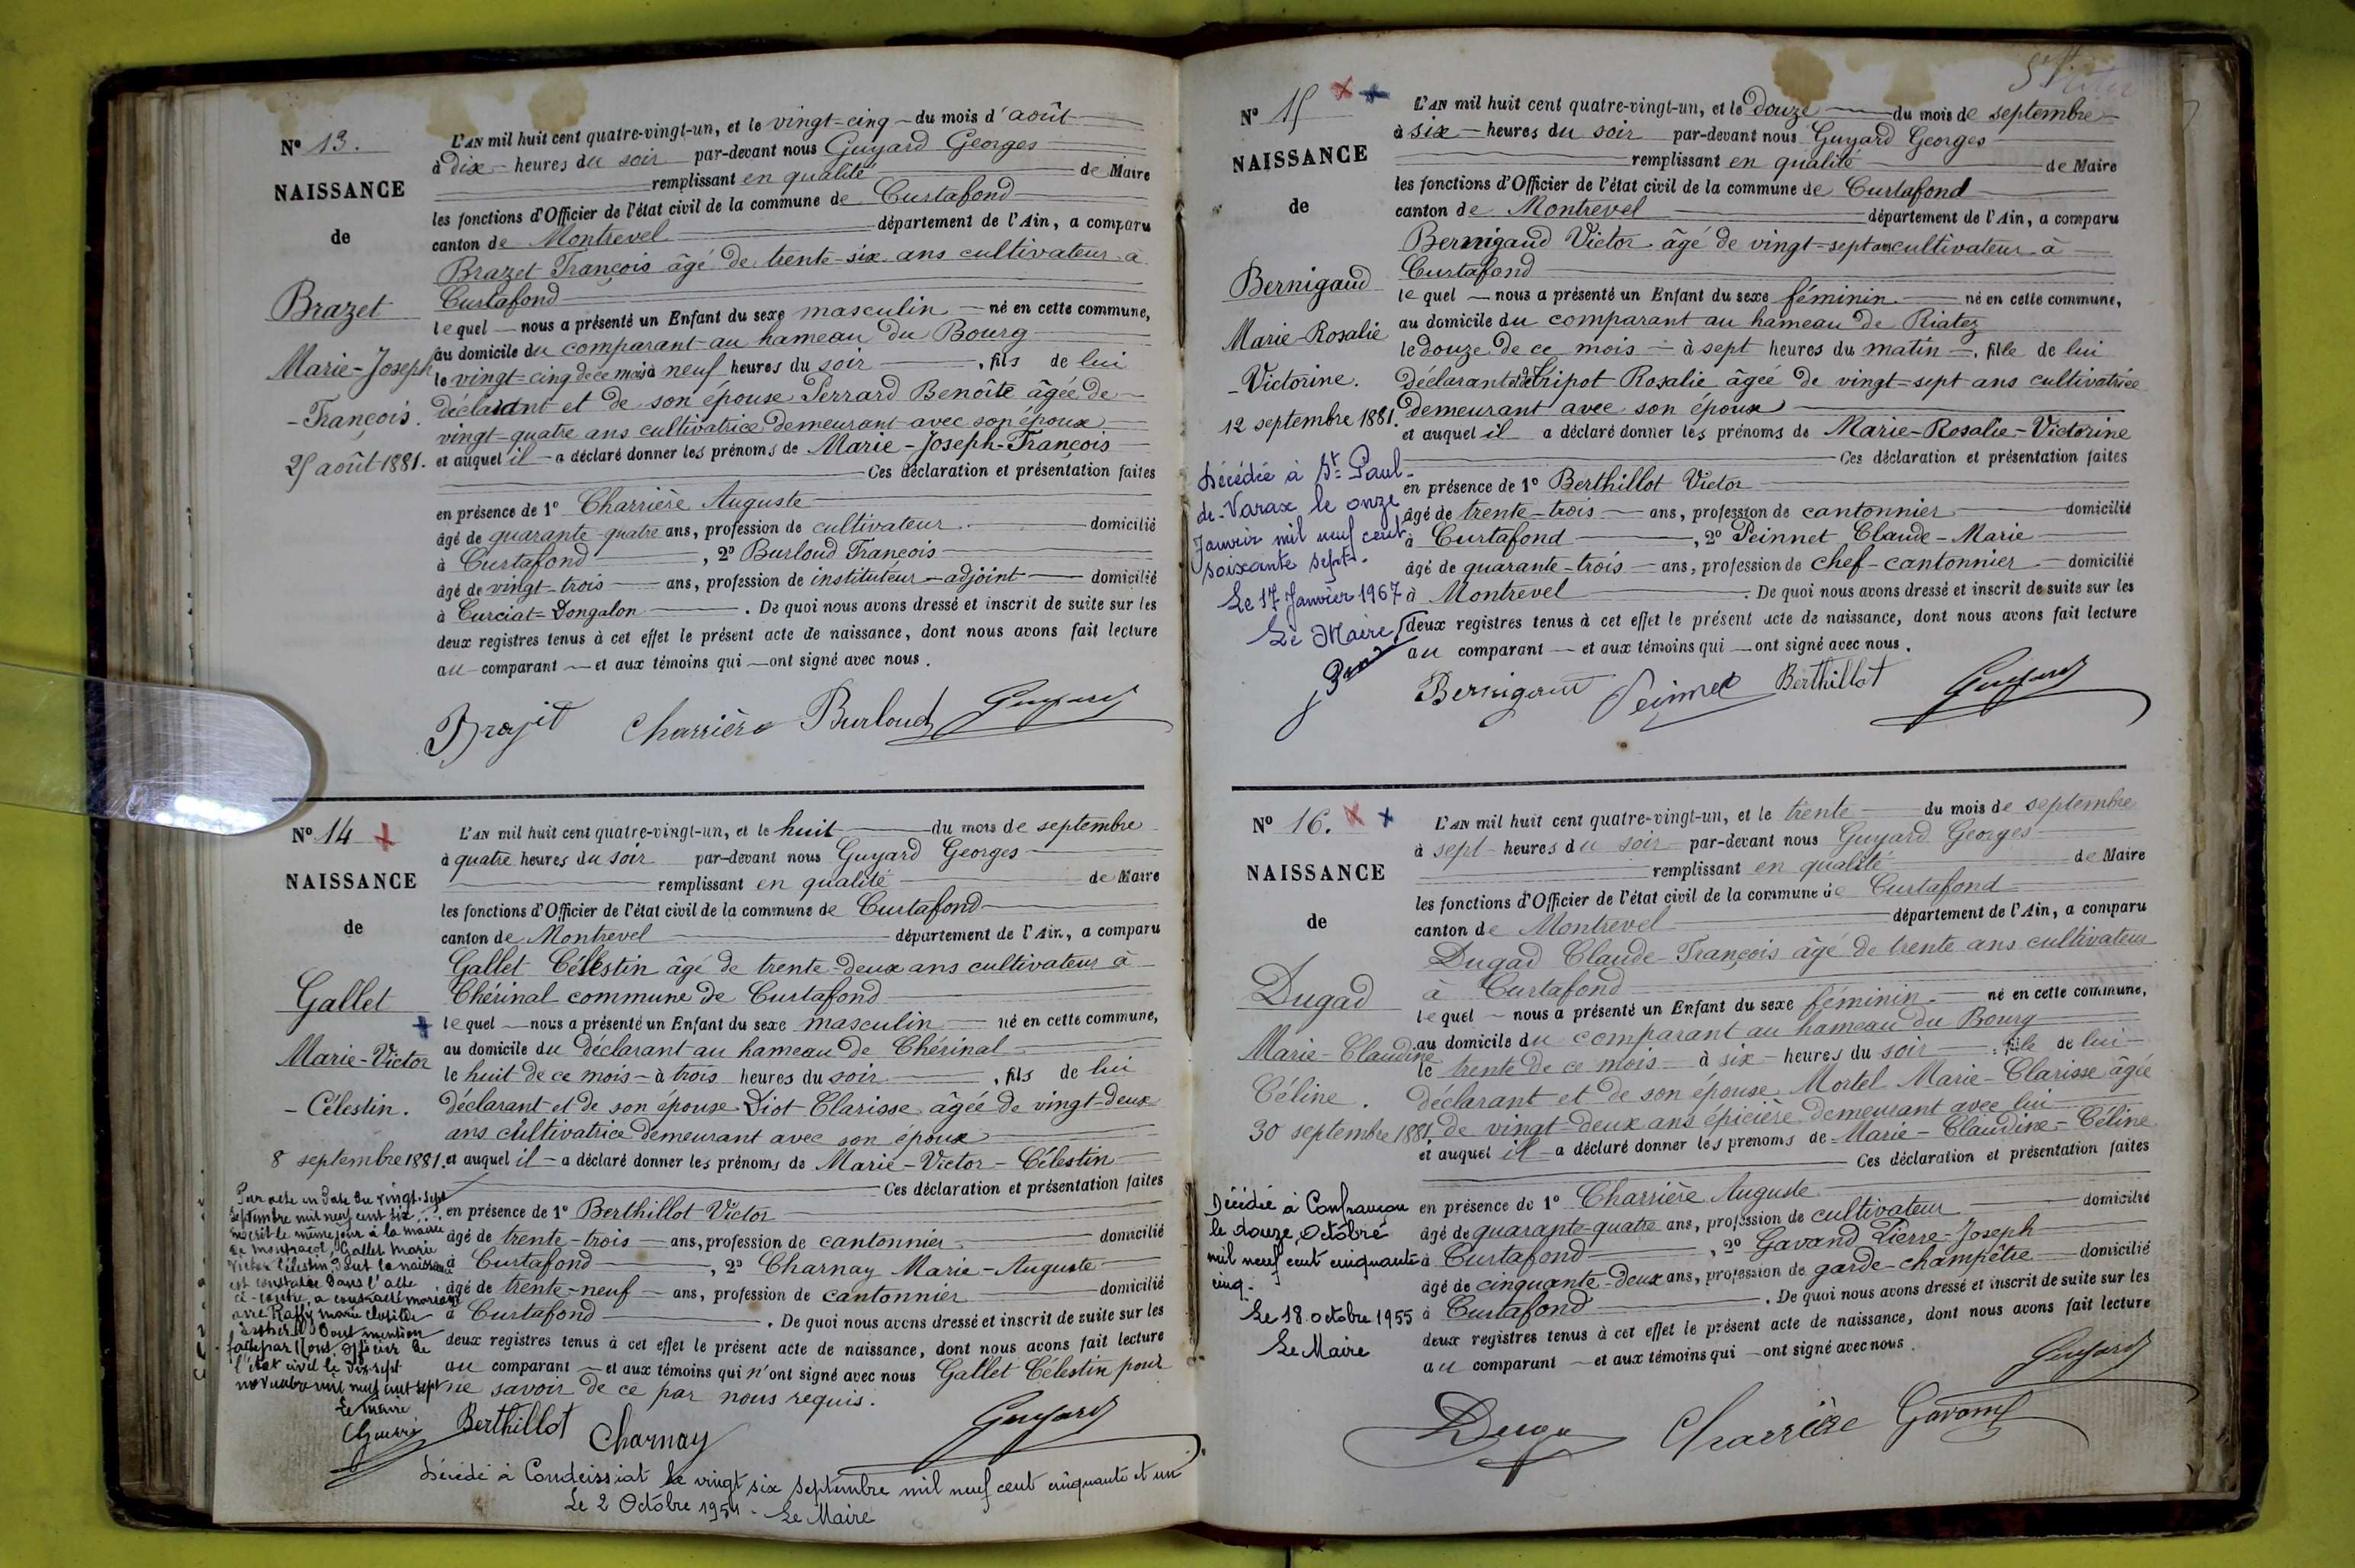 Nº 13.
NAISSANCE
de
Brazet
Marie-Joseph
-François.
25 août 1881.
L'AN mil huit cent quatre-vingt-un, et le vingt-cinq du mois d'août
à dix heures du soir par-devant nous Guyard Georges
remplissant en qualité de Maire
les fonctions d'Officier de l'état civil de la commune de Curtafond
canton de Montrevel département de l'Ain, a comparu
Brazet François âgé de trente-six ans cultivateur à
Curtafond
lequel nous a présenté un Enfant du sexe masculin né en cette commune,
au domicile du comparant au hameau du Bourg
le vingt-cinq de ce mois à neuf heures du soir, fils de lui
déclarant et de son épouse Perrard Benoîte âgée de
vingt-quatre ans cultivatrice demeurant avec son époux
et auquel il a déclaré donner les prénoms de Marie-Joseph-François
Ces déclaration et présentation faites
en présence de 1º Charrière Auguste
âgé de quarante-quatre ans, profession de cultivateur domicilié
à Curtafond, 2º Burloud François
âgé de vingt-trois ans, profession de instituteur-adjoint domicilié
à Curciat-Dongalon. De quoi nous avons dressé et inscrit de suite sur les
deux registres tenus à cet effet le présent acte de naissance, dont nous avons fait lecture
au comparant et aux témoins qui ont signé avec nous.
Brazet Charrière Burloud Guyard
Nº 14
NAISSANCE
de
Gallet
Marie-Victor
-Célestin.
8 septembre 1881.
L'AN mil huit cent quatre-vingt-un, et le huit du mois de septembre
à quatre heures du soir par-devant nous Guyard Georges
remplissant en qualité de Maire
les fonctions d'Officier de l'état civil de la commune de Curtafond
canton de Montrevel département de l'Ain, a comparu
Gallet Célestin âgé de trente-deux ans cultivateur à
Chérinal commune de Curtafond
lequel nous a présenté un Enfant du sexe masculin né en cette commune,
au domicile du déclarant au hameau de Chérinal
le huit de ce mois à trois heures du soir, fils de lui
déclarant et de son épouse Diot Clarisse âgée de vingt-deux
ans cultivatrice demeurant avec son époux
et auquel il a déclaré donner les prénoms de Marie-Victor-Célestin
Ces déclaration et présentation faites
en présence de 1º Berthillot Victor
âgé de trente-trois ans, profession de cantonnier domicilié
à Curtafond, 2º Charnay Marie-Auguste
âgé de trente-neuf ans, profession de cantonnier domicilié
à Curtafond. De quoi nous avons dressé et inscrit de suite sur les
deux registres tenus à cet effet le présent acte de naissance, dont nous avons fait lecture
au comparant et aux témoins qui n'ont signé avec nous Gallet Célestin pour
ne savoir de ce par nous requis.
Par acte en date du vingt-sept
septembre mil neuf cent six
inscrit le même jour à la mairie
de Montracol, Gallet Marie
Victor Célestin, dont la naissance
est constatée dans l'acte
ci-contre, a contracté mariage
avec Raffy Marie Clotilde
dont mention
faite par Nous, officier de
l'état civil le dix-sept
novembre mil neuf cent sept
Le Maire
Berthillot Charnay Guyard
Décédé à Condeissiat le vingt six septembre mil neuf cent cinquante et un
Le 2 Octobre 1951. Le Maire
Nº 15
NAISSANCE
de
Bernigaud
Marie-Rosalie
-Victorine.
12 septembre 1881.
L'AN mil huit cent quatre-vingt-un, et le douze du mois de septembre
à six heures du soir par-devant nous Guyard Georges
remplissant en qualité de Maire
les fonctions d'Officier de l'état civil de la commune de Curtafond
canton de Montrevel département de l'Ain, a comparu
Bernigaud Victor âgé de vingt-sept ans cultivateur à
Curtafond
lequel nous a présenté un Enfant du sexe féminin né en cette commune,
au domicile du comparant au hameau de Riatez
le douze de ce mois à sept heures du matin, fille de lui
déclarant et de Tripot Rosalie âgée de vingt-sept ans cultivatrice
demeurant avec son époux
et auquel il a déclaré donner les prénoms de Marie-Rosalie-Victorine
Ces déclaration et présentation faites
en présence de 1º Berthillot Victor
âgé de trente-trois ans, profession de cantonnier domicilié
à Curtafond, 2º Peinnet Claude-Marie
âgé de quarante-trois ans, profession de chef-cantonnier domicilié
à Montrevel. De quoi nous avons dressé et inscrit de suite sur les
deux registres tenus à cet effet le présent acte de naissance, dont nous avons fait lecture
au comparant et aux témoins qui ont signé avec nous.
Décédée à St-Paul-
de-Varax le onze
Janvier mil neuf cent
soixante sept.
Le 17 Janvier 1967
Le Maire
Bernigaud Peinnet Berthillot Guyard
Nº 16.
NAISSANCE
de
Dugad
Marie-Claudine
Céline.
30 septembre 1881.
L'AN mil huit cent quatre-vingt-un, et le trente du mois de septembre
à sept heures du soir par-devant nous Guyard Georges
remplissant en qualité de Maire
les fonctions d'Officier de l'état civil de la commune de Curtafond
canton de Montrevel département de l'Ain, a comparu
Dugad Claude-François âgé de trente ans cultivateur
à Curtafond
lequel nous a présenté un Enfant du sexe féminin né en cette commune,
au domicile du comparant au hameau du Bourg
le trente de ce mois à six heures du soir, fille de lui
déclarant et de son épouse Mortel Marie-Clarisse âgée
de vingt-deux ans épicière demeurant avec lui
et auquel il a déclaré donner les prénoms de Marie-Claudine-Céline
Ces déclaration et présentation faites
en présence de 1º Charrière Auguste
âgé de quarante-quatre ans, profession de cultivateur domicilié
à Curtafond, 2º Gavand Pierre-Joseph
âgé de cinquante-deux ans, profession de garde-champêtre domicilié
à Curtafond. De quoi nous avons dressé et inscrit de suite sur les
deux registres tenus à cet effet le présent acte de naissance, dont nous avons fait lecture
au comparant et aux témoins qui ont signé avec nous.
Décédée à Confrançon
le douze Octobre
mil neuf cent cinquante
cinq.
Le 18 octobre 1955
Le Maire
Guyard
Duga Charrière Gavand